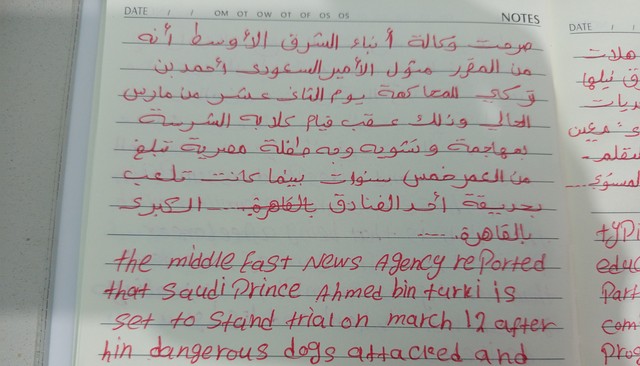 DATE / / OM OT OW OT OF OS OS NOTES
صرحت وكالة أنباء الشرق الأوسط أنه
من المقرر مثول الأمير السعودى أحمد بن
تركي للمحاكمة يوم الثانى عشر من مارس
الحالي وذلك عقب قيام كلابه الشرسة
بمهاجمة و تشويه وجه طفلة مصرية تبلغ
من العمر خمس سنوات بينما كانت تلعب
بحديقة أحد الفنادق بالقاهرة الكبرى
بالقاهرة.....
the middle East News Agency reported
that Saudi Prince Ahmed bin turki is
set to stand trial on march 12 after
hin dangerous dogs attacked and
DATE /
هلات
ق نيلها
ديات
معين
ستقلم
لمستوى
typi
educ
Part
com
prog